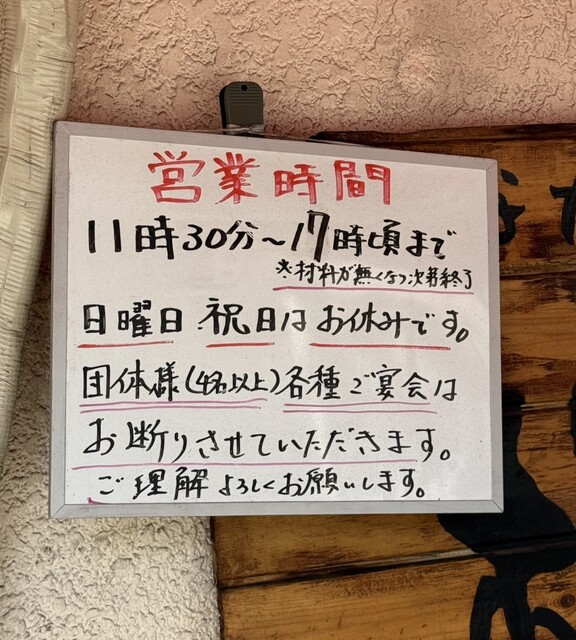 営業時間
11時30分～17時頃まで
※材料が無くなり次第終了
日曜日 祝日は お休みです。
団体様(4名以上)各種ご宴会は
お断りさせていただきます。
ご理解よろしくお願いします。